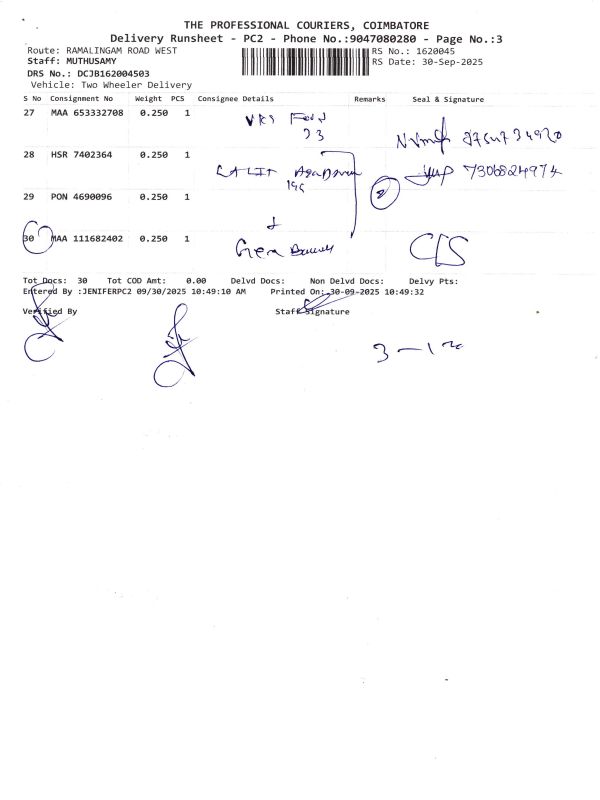 THE PROFESSIONAL COURIERS, COIMBATORE
Delivery Runsheet - PC2 - Phone No.:9047080280 - Page No.:3
Route: RAMALINGAM ROAD WEST
RS No.: 1620045
Staff: MUTHUSAMY
RS Date: 30-Sep-2025
DRS No.: DCJB162004503
Vehicle: Two Wheeler Delivery
S No Consignment No Weight PCS Consignee Details Remarks Seal & Signature
27 MAA 653332708 0.250 1
28 HSR 7402364 0.250 1 LALIT
7306824974
29 PON 4690096 0.250 1 2
30 MAA 111682402 0.250 1 CLS
Tot Docs: 30 Tot COD Amt: 0.00 Delvd Docs: Non Delvd Docs: Delvy Pts:
Entered By :JENIFERPC2 09/30/2025 10:49:10 AM Printed On: 30-09-2025 10:49:32
Verified By Staff Signature